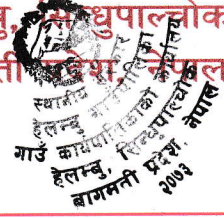 बु, सिन्धुपाल्चोक
ती प्रदेश, नेपाल
स्थानीय सरकार
हेलम्बु गाउँपालिका
गाउँ कार्यपालिकाको कार्यालय
हेलम्बु, सिन्धुपाल्चोक
बागमती प्रदेश, नेपाल
२०७३